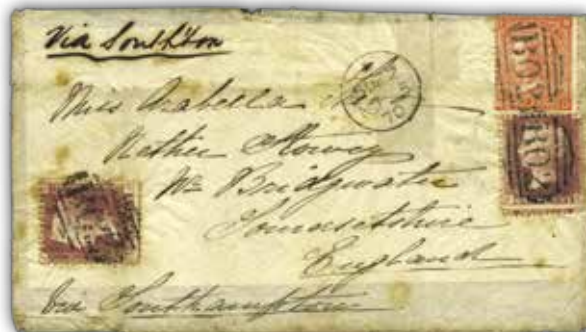 Via Southton
B02
Miss Arabella
Nether Stowey
Nr. Bridgwater
B02
Somersetshire
England
Via Southampton